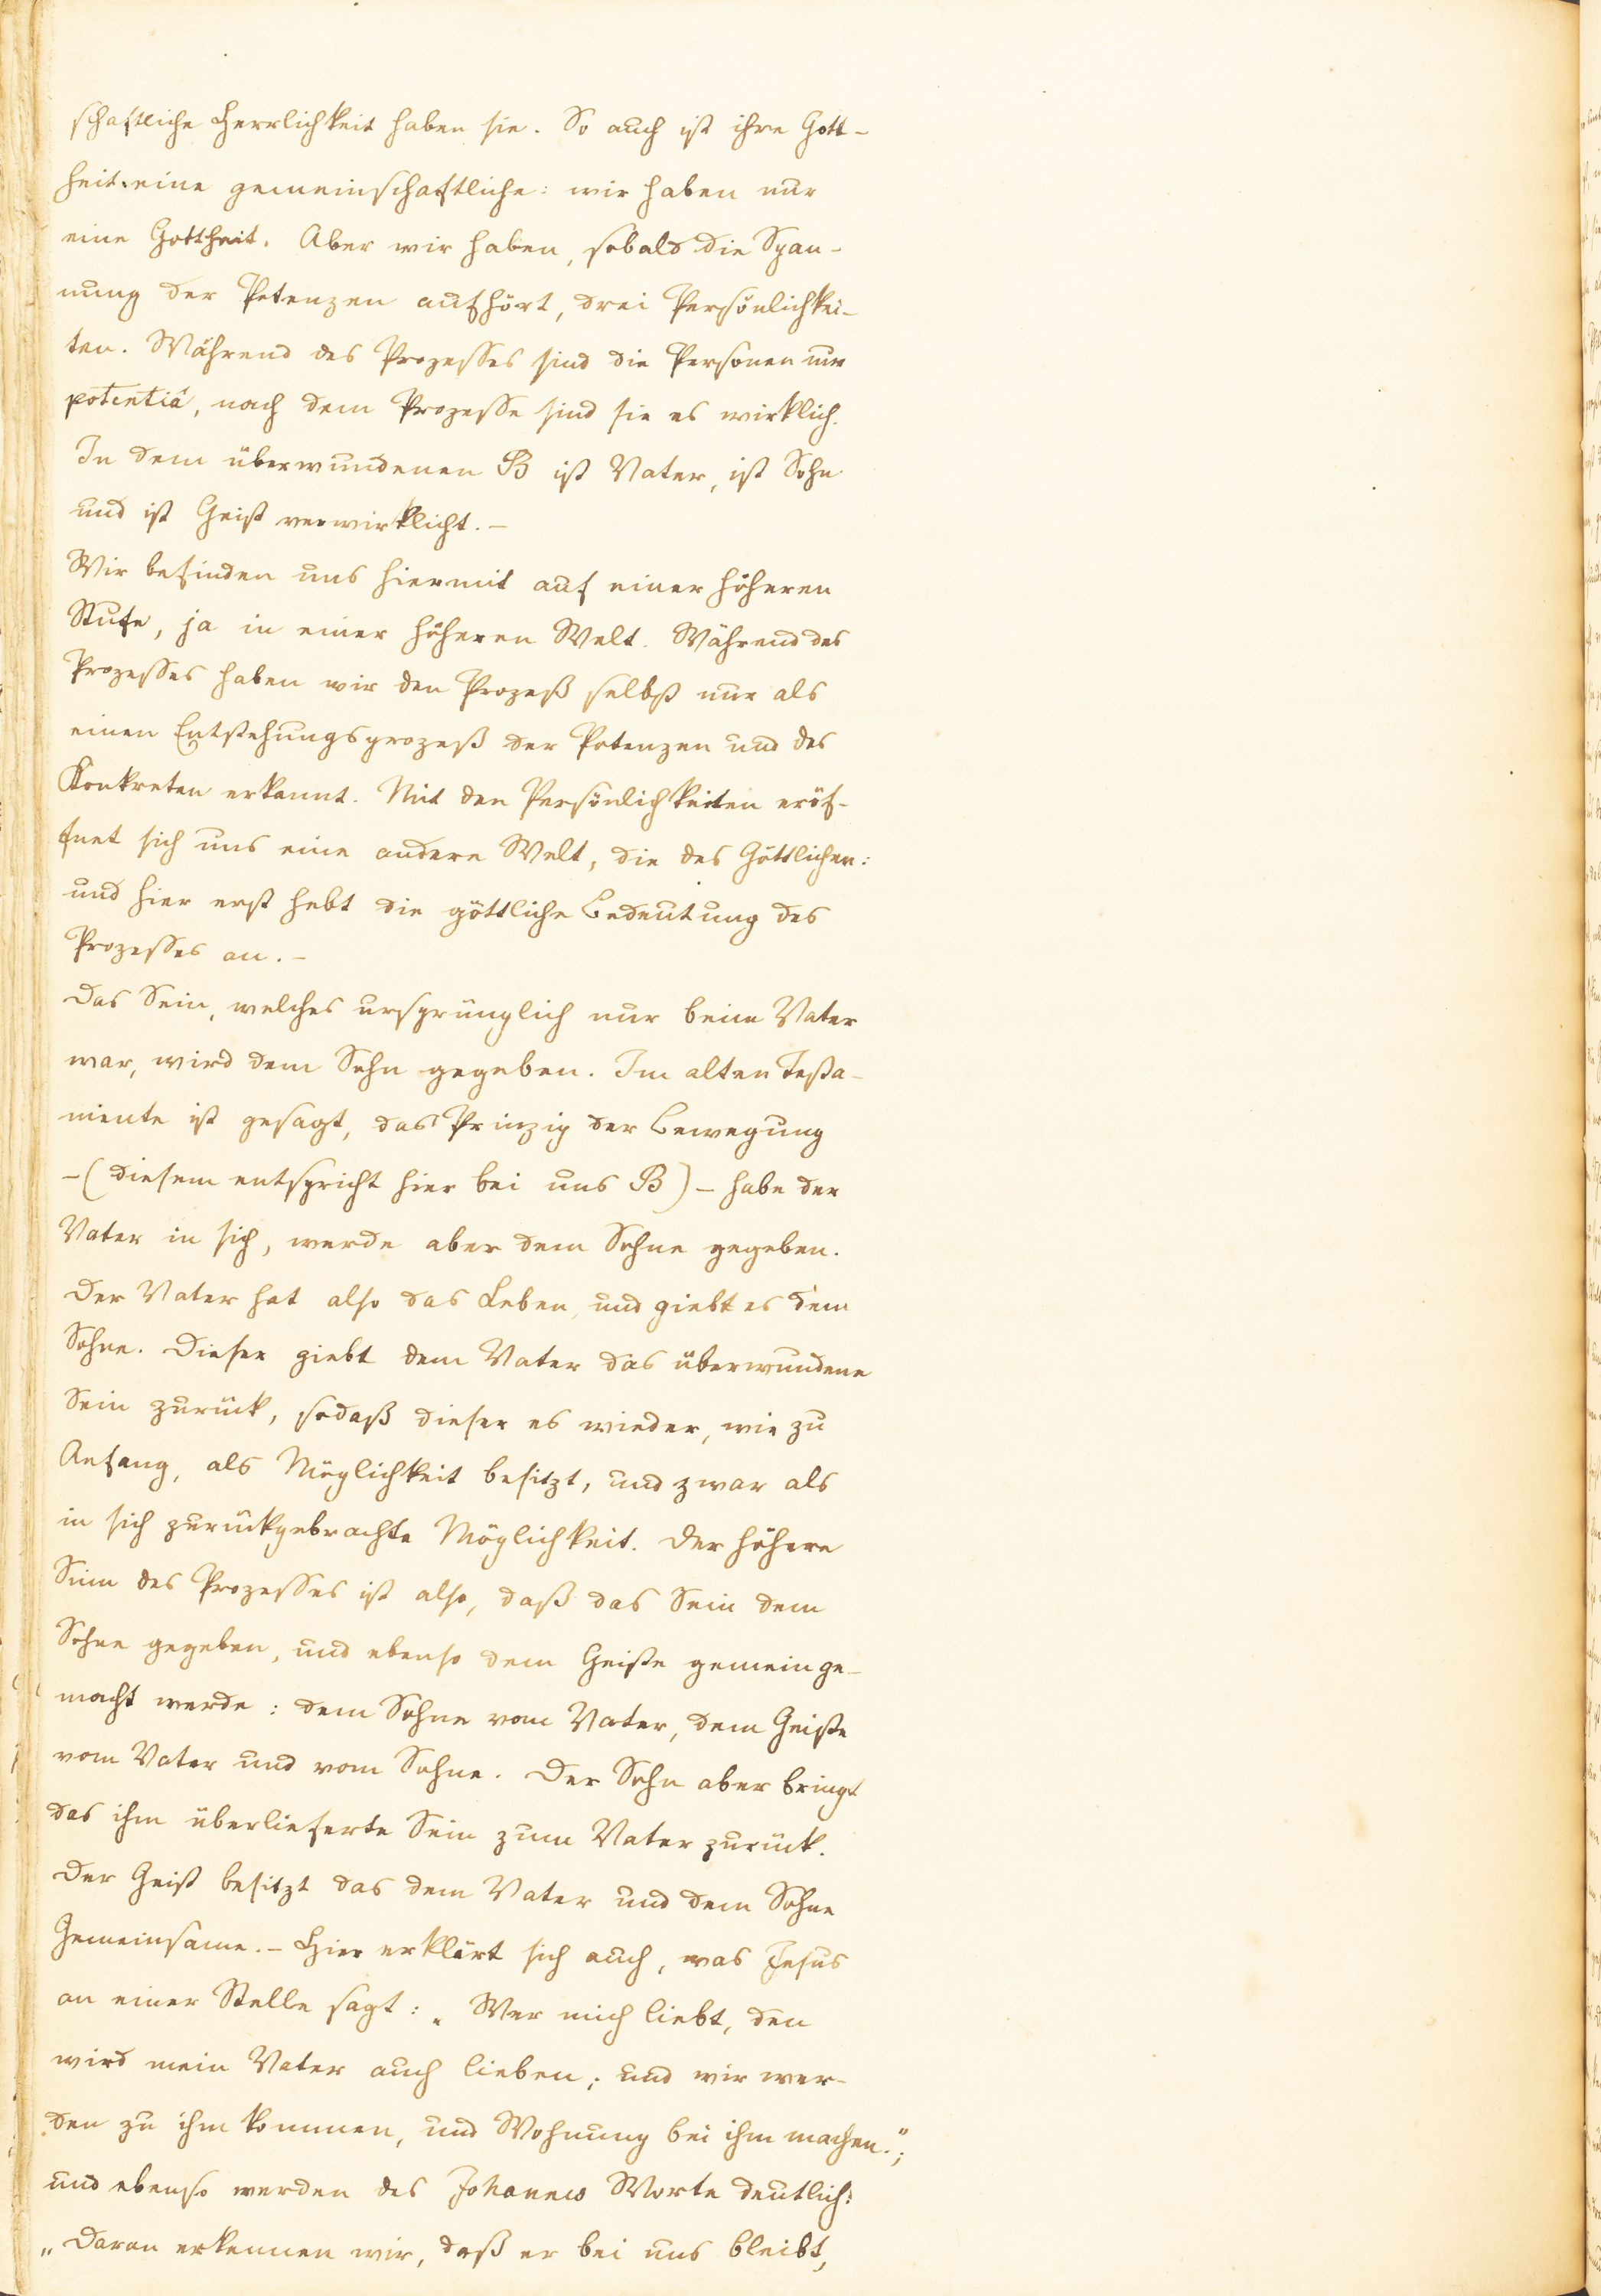 schaftliche Herrlichkeit haben sie. So auch ist ihre Gott-
heit eine gemeinschaftliche: wir haben nur
eine Gottheit. Aber wir haben, sobald die Span-
nung der Potenzen aufhört, drei Persönlichkei-
ten. Während des Prozesses sind die Personen nur
potentiâ, nach dem Prozesse sind sie es wirklich.
In dem überwundenen B ist Vater, ist Sohn
und ist Geist verwirklicht. –
Wir befinden uns hiermit auf einer höheren
Stufe, ja in einer höheren Welt. Während des
Prozesses haben wir den Prozeß selbst nur als
einen Entstehungsprozeß der Potenzen und des
Konkreten erkannt. Mit den Persönlichkeiten eröf-
fnet sich uns eine andere Welt, die des Göttlichen:
und hier erst hebt die göttliche Bedeutung des
Prozesses an. –
Das Sein, welches ursprünglich nur beim Vater
war, wird dem Sohn gegeben. Im alten Testa-
mente ist gesagt, das Prinzip der Bewegung
– (diesem entspricht hier bei uns B) – habe der
Vater in sich, werde aber dem Sohne gegeben.
Der Vater hat also das Leben, und giebt es dem
Sohne. Dieser giebt dem Vater das überwundene
Sein zurück, sodaß dieser es wieder, wie zu
Anfang, als Möglichkeit besitzt, und zwar als
in sich zurückgebrachte Möglichkeit. Der höhere
Sinn des Prozesses ist also, daß das Sein dem
Sohne gegeben, und ebenso dem Geiste gemein ge-
macht werde: dem Sohne vom Vater, dem Geiste
vom Vater und vom Sohne. Der Sohn aber bringt
das ihm überlieferte Sein zum Vater zurück.
Der Geist besitzt das dem Vater und dem Sohne
Gemeinsame. – Hier erklärt sich auch, was Jesus
an einer Stelle sagt: „Wer mich liebt, den
wird mein Vater auch lieben; und wir wer-
den zu ihm kommen, und Wohnung bei ihm machen.“;
und ebenso werden des Johannes Worte deutlich:
„Daran erkennen wir, daß er bei uns bleibt,